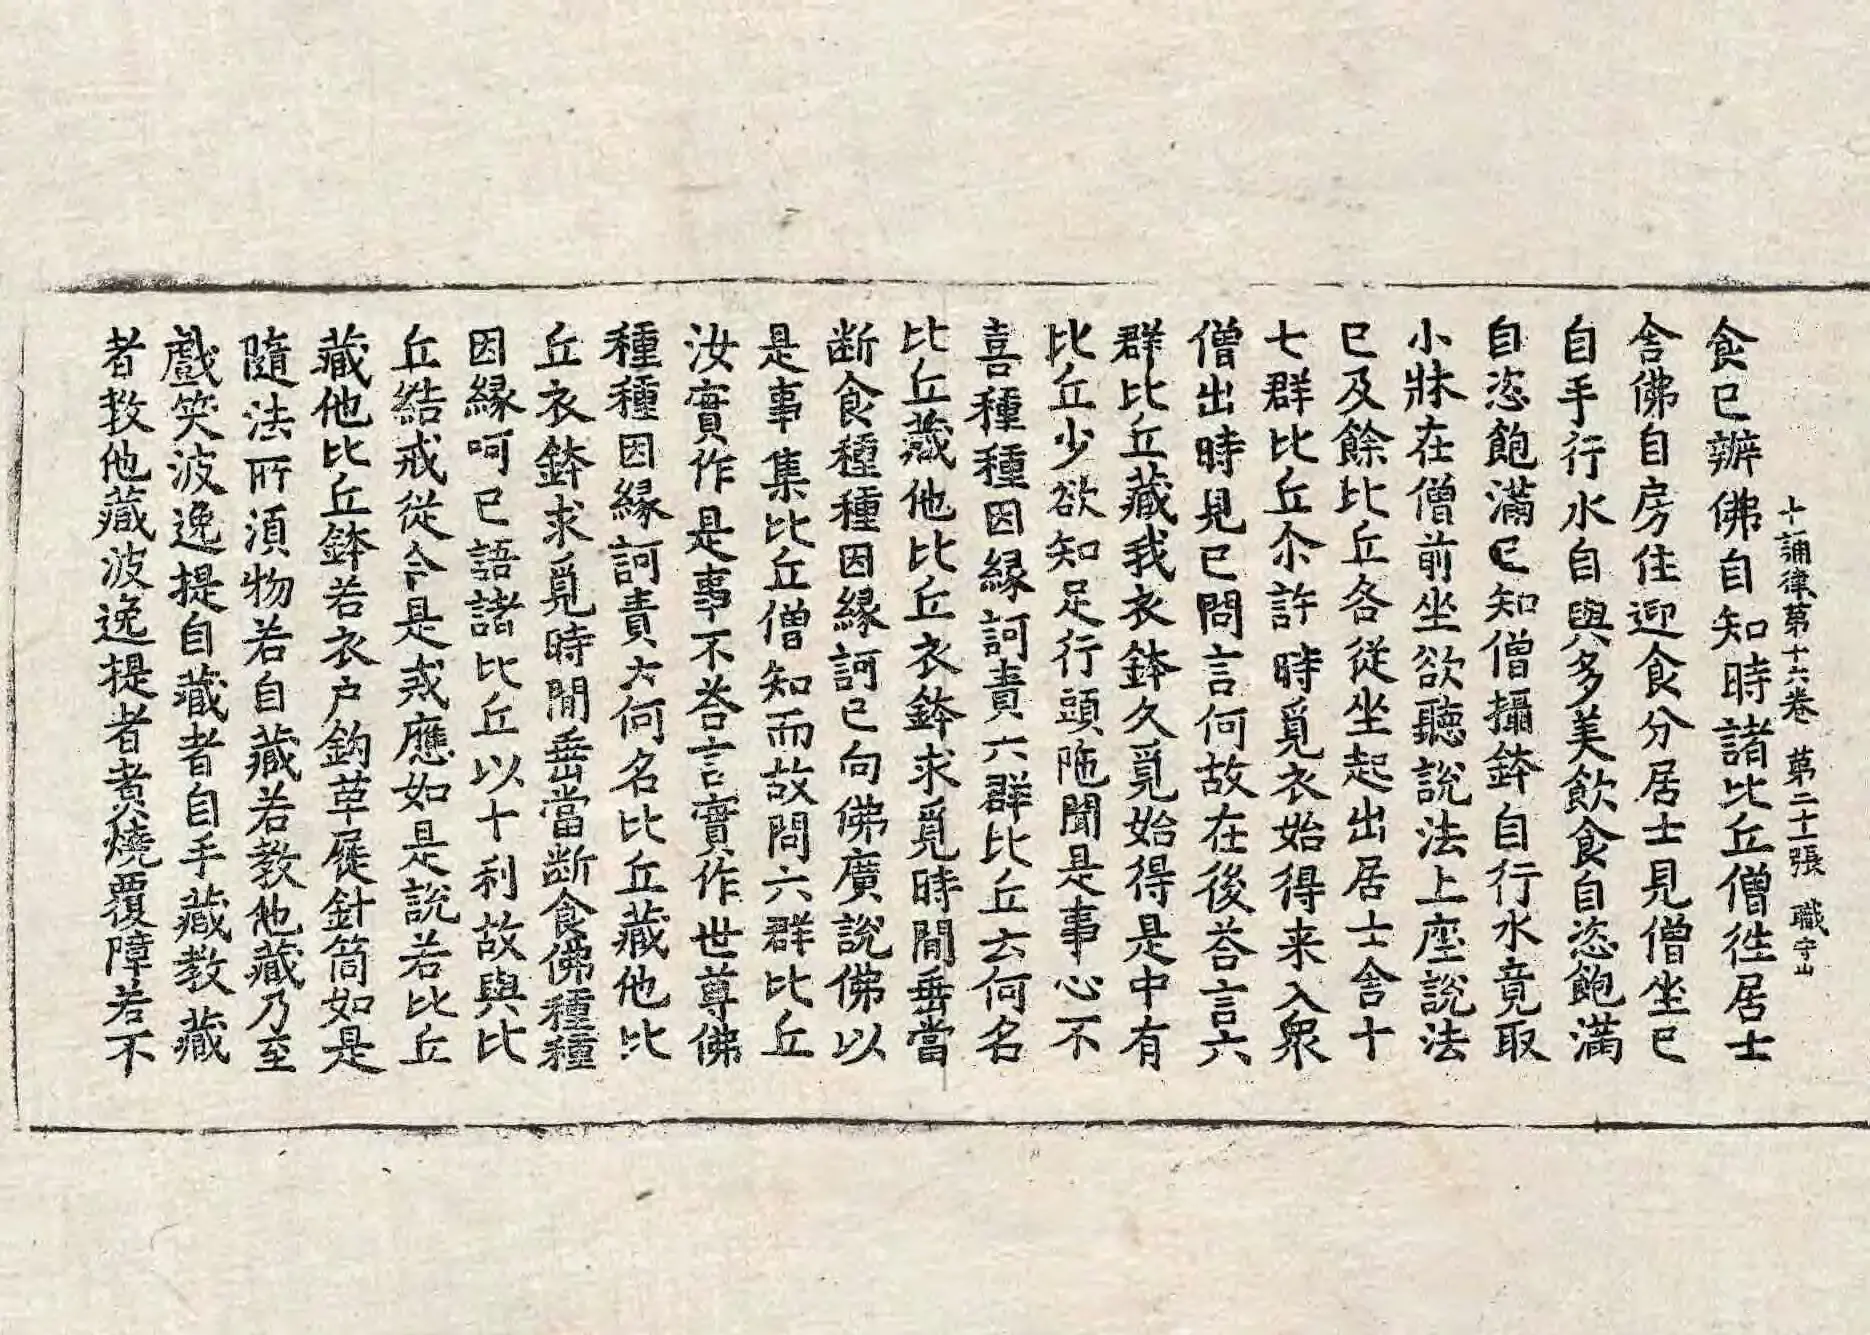 十誦律第十六卷 第二十二張 職 守山
食已辦佛自知時諸比丘僧徃居士
舍佛自房住迎食分居士見僧坐已
自手行水自與多美飲食自恣飽滿
自恣飽滿已知僧攝鉢自行水竟取
小牀在僧前坐欲聽說法上座說法
已及餘比丘各從坐起出居士舍十
七群比丘尒許時覓衣始得来入衆
僧出時見已問言何故在後荅言六
群比丘藏我衣鉢久覓始得是中有
比丘少欲知足行頭陁聞是事心不
喜種種因縁訶責六群比丘云何名
比丘藏他比丘衣鉢求覓時閒垂當
断食種種因縁訶已向佛廣說佛以
是事集比丘僧知而故問六群比丘
汝實作是事不荅言實作世尊佛
種種因縁訶責云何名比丘藏他比
丘衣鉢求覓時閒垂當断食佛種種
因縁呵已語諸比丘以十利故與比
丘結戒從今是戒應如是說若比丘
藏他比丘鉢若衣户鈎革屣針筒如是
隨法所湏物若自藏若教他藏乃至
戲笑波逸提自藏者自手藏教藏
者教他藏波逸提者煑燒覆障若不